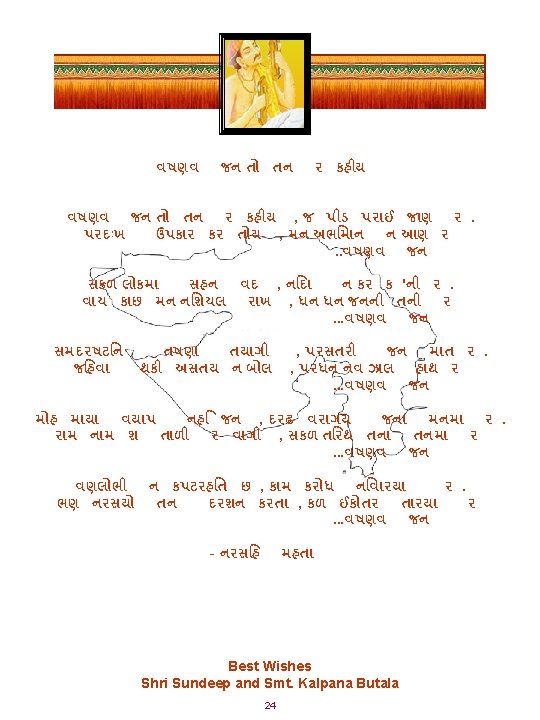 વષણવ જન તો તન ર કહીય
વષણવ જન તો તન ર કહીય , જ પીડ પરાઈ જાણ ર .
પરદઃખ ઉપકાર કર તોય , મન અભમિાન ન આણ ર
..વષણવ જન
સકળ લોકમા સહન વદ , નદિા ન કર ક 'ની ર .
વાચ કાછ મન નશિચલ રાખ , ધન ધન જનની તની ર
...વષણવ જન
સમદરષટનિ તષણા તયાગી , પરસતરી જન માત ર .
જહિવા થકી અસતય ન બોલ , પરધન નવ ઝાલ હાથ ર
...વષણવ જન
મોહ માયા વયાપ નહિ જન , દરઢ વરાગય જના મનમા ર .
રામ નામ શ તાળી ર વાગી , સકળ તરિથ તના તનમા ર
...વષણવ જન
વણલોભી ન કપટરહતિ છ , કામ કરોધ નવિારયા ર .
ભણ નરસયો તન દરશન કરતા , કળ ઈકોતર તારયા ર
...વષણવ જન
- નરસહિ મહતા
Best Wishes
Shri Sundeep and Smt. Kalpana Butala
24